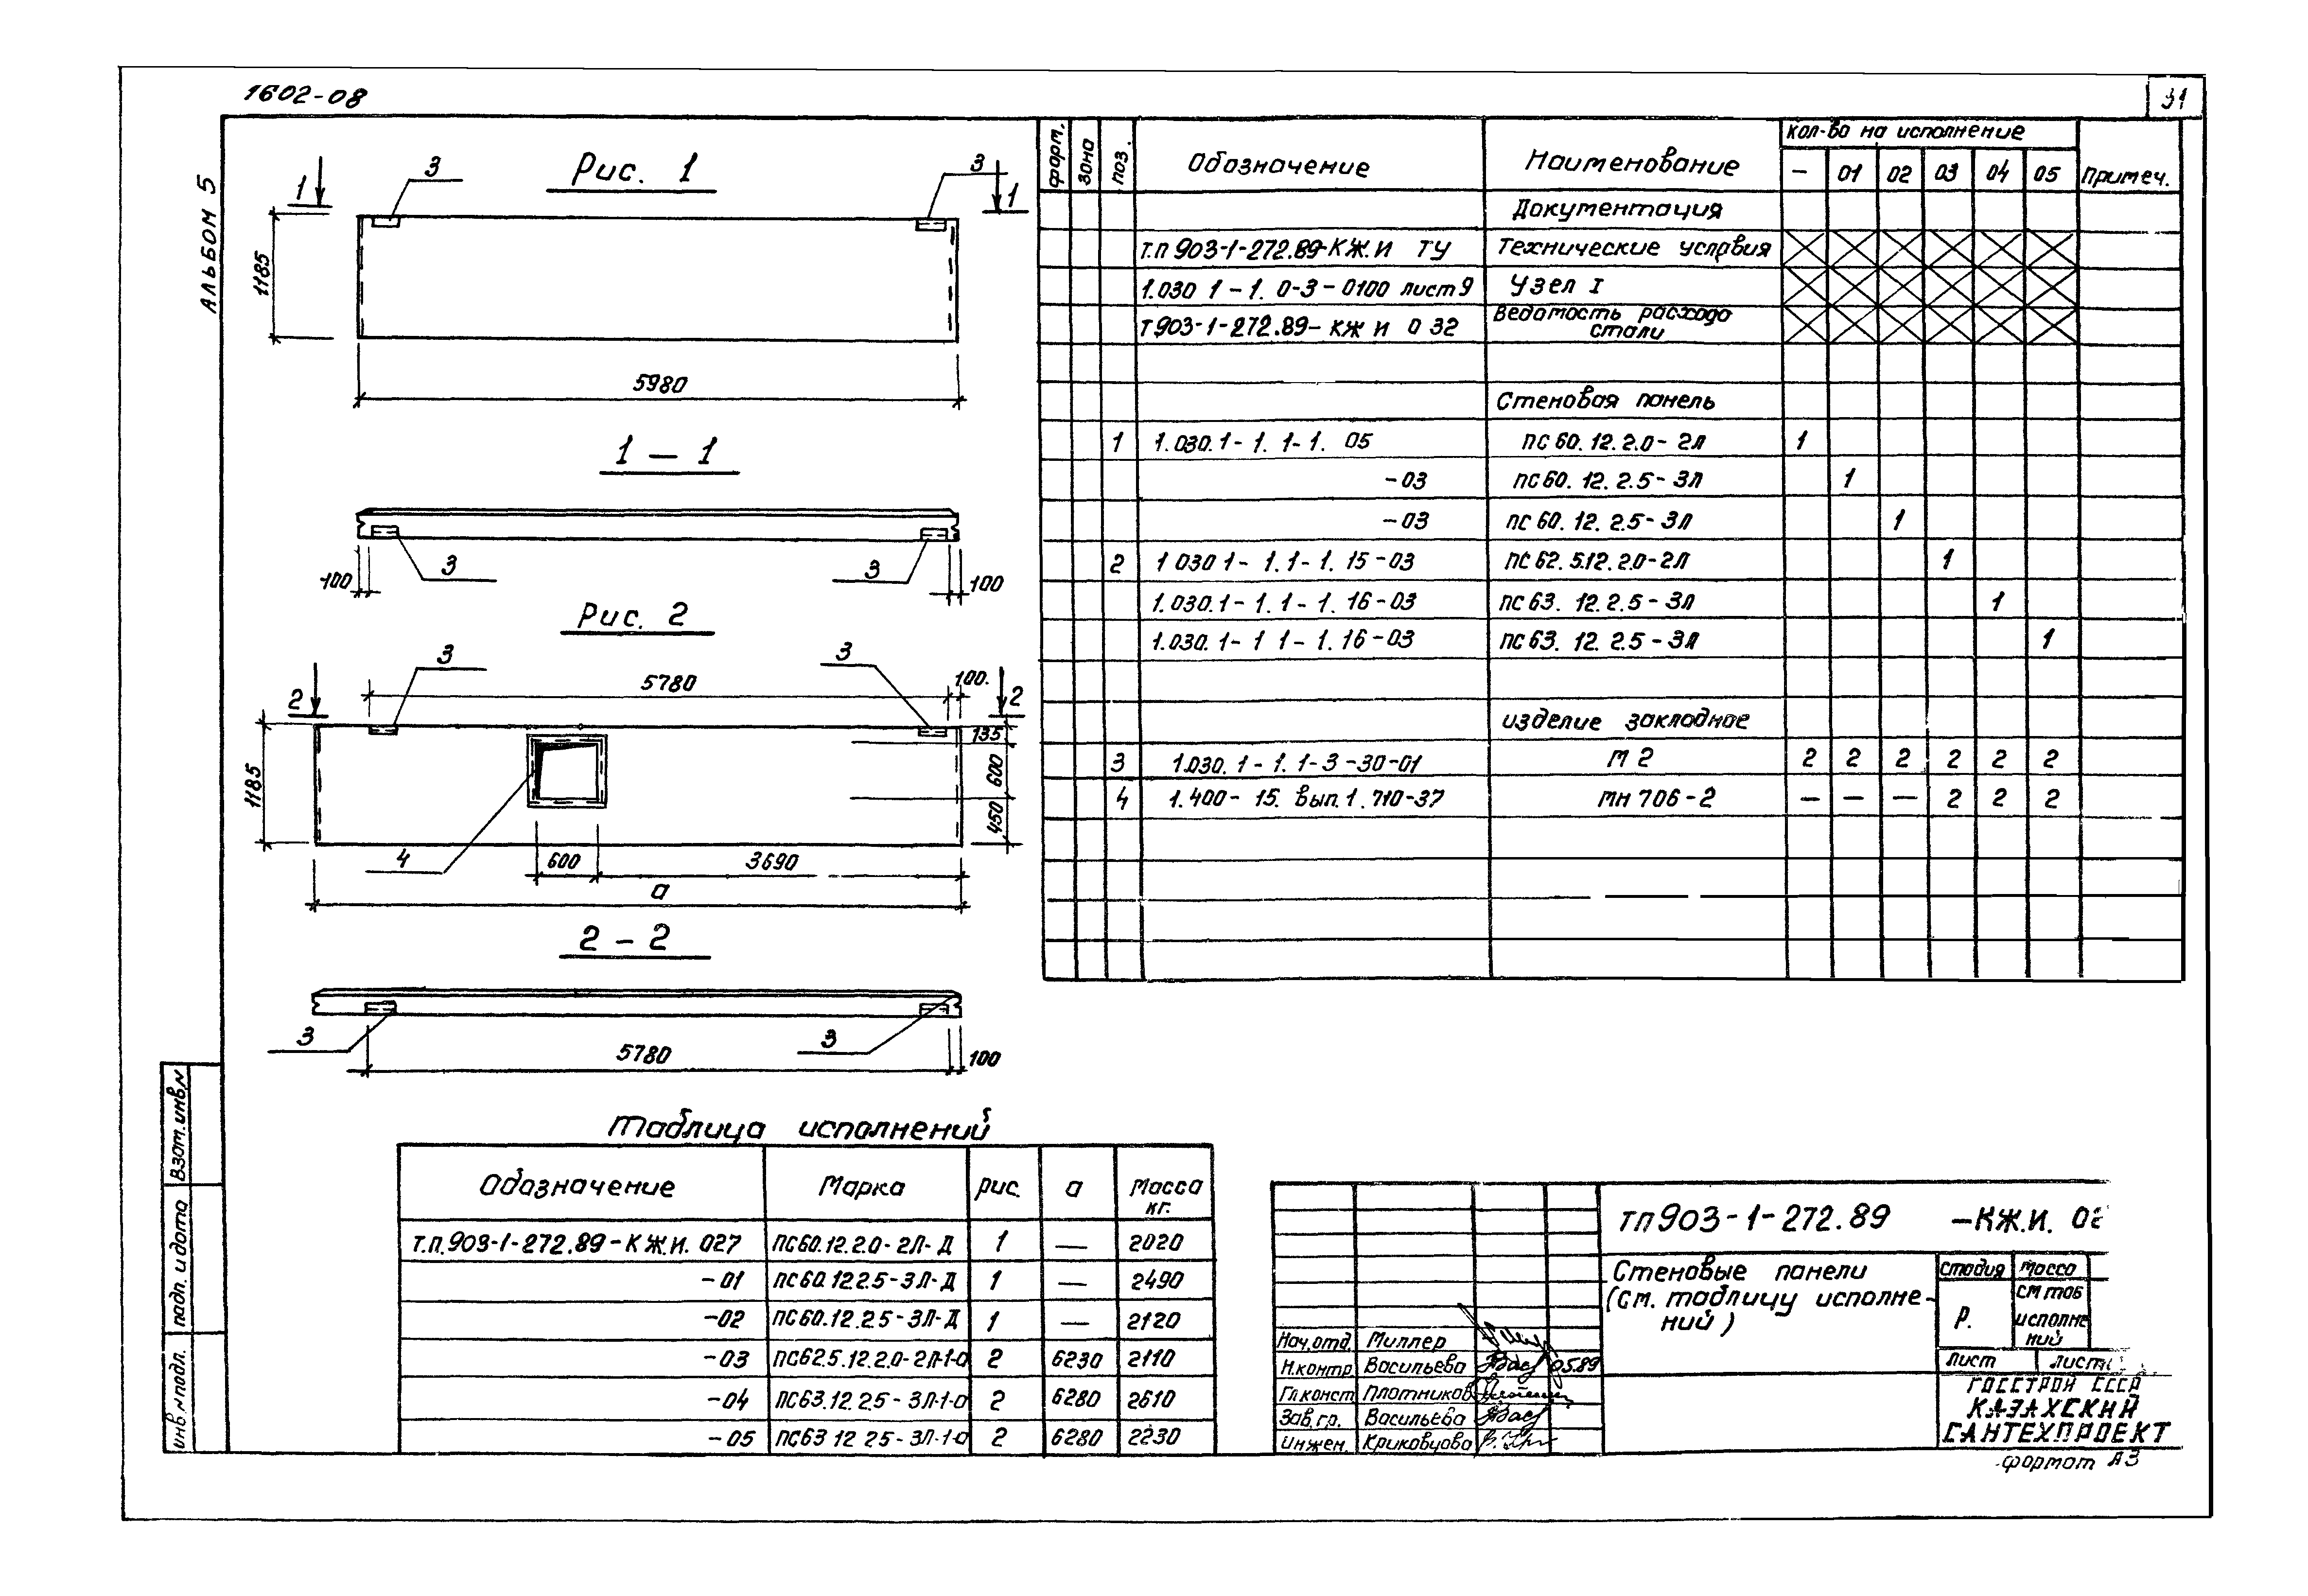 1602-08
31
АЛЬБОМ 5
Рис. 1
1
3
3
1
1185
5980
1 – 1
3
3
100
100
Рис. 2
3
3
5780
100.
2
2
1185
135
600
450
4
600
3690
а
2 – 2
3
3
5780
100
форм. зона поз. Обозначение Наименование Кол-во на исполнение Примеч.
– 01 02 03 04 05
Документация
Т.п 903-1-272.89-КЖ.И ТУ Технические условия
1.030 1 – 1. 0-3 – 0100 лист 9 Узел I
Т 903-1-272.89- КЖ И 0 32 Ведомость расхода
стали
Стеновая панель
1 1.030.1- 1. 1- 1. 05 ПС 60. 12. 2.0- 2Л 1
-03 ПС 60. 12. 2.5- 3Л 1
-03 ПС 60. 12. 2.5- 3Л 1
2 1 030 1- 1. 1- 1. 15 -03 ПС 62. 5.12. 2.0-2Л 1
1.030.1- 1. 1- 1. 16 -03 ПС 63. 12. 2.5 - 3Л 1
1.030. 1- 1 1- 1. 16 -03 ПС 63. 12. 2.5 - 3Л 1
изделие закладное
3 1.030. 1- 1. 1-3-30-01 М 2 2 2 2 2 2 2
4 1.400- 15. Вып.1. 710-37 МН 706-2 — — — 2 2 2
Таблица исполнений
Обозначение Марка рис. а Масса
кг.
т.п.903-1-272.89-КЖ.И. 027 ПС60.12.2.0-2Л-Д 1 — 2020
-01 ПС60.12 2.5-3Л-Д 1 — 2490
-02 ПС60.12.2.5-3Л-Д 1 — 2120
-03 ПС62.5.12.2.0-2Л-1-о 2 6230 2110
-04 ПС63.12.2.5-3Л-1-о 2 6280 2610
-05 ПС63 12 25-3Л-1-о 2 6280 2230
Взат. инв. N
падп. и дата
инв N подл.
ТП 903-1-272.89 -КЖ.И.
Стеновые панели
(см. таблицу исполне-
ний)
стадия масса
Р.
см таб
исполне
ний
лист
Нач.отд. Миллер
Н.контр Васильева 05.89
Гл.конст Плотников
Зав.гр. Васильева
Инжен. Криковцова
ГОССТРОЙ СССР
КАЗАХСКИЙ
САНТЕХПРОЕКТ
формат А3